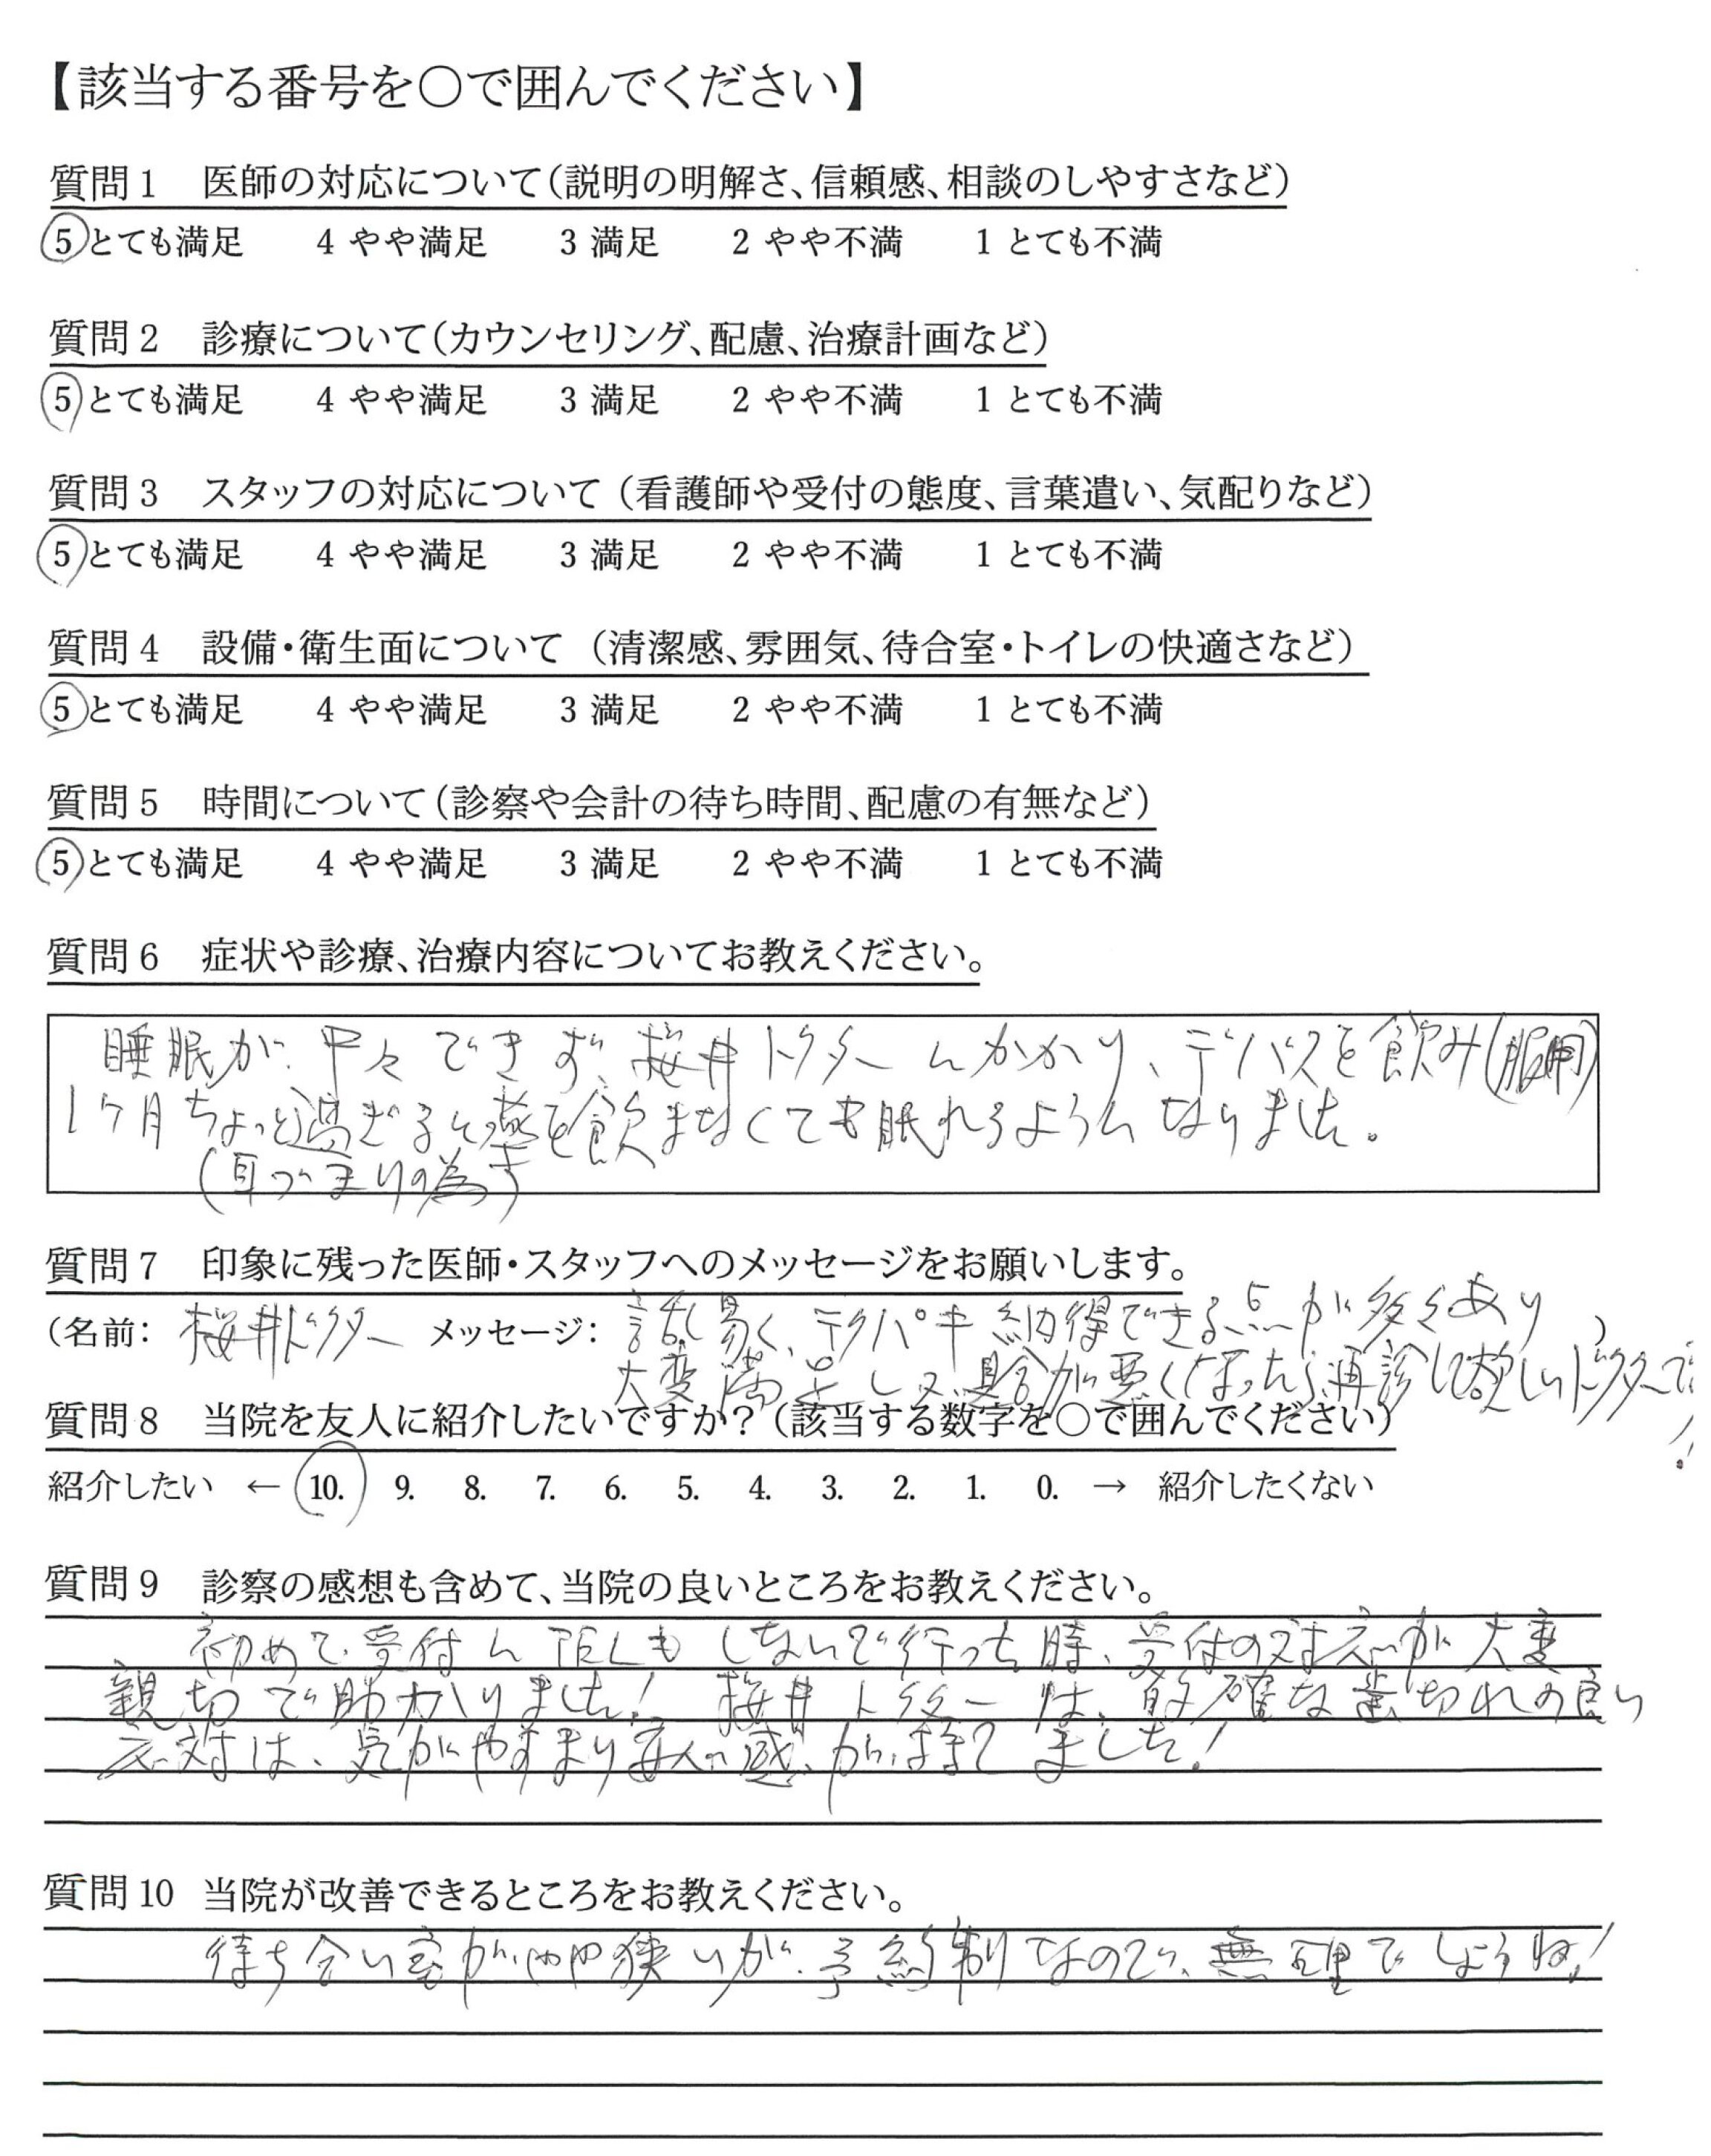 【該当する番号を〇で囲んでください】
質問1 医師の対応について（説明の明解さ、信頼感、相談のしやすさなど）
5 とても満足 4 やや満足 3 満足 2 やや不満 1 とても不満
質問2 診療について（カウンセリング、配慮、治療計画など）
5 とても満足 4 やや満足 3 満足 2 やや不満 1 とても不満
質問3 スタッフの対応について（看護師や受付の態度、言葉遣い、気配りなど）
5 とても満足 4 やや満足 3 満足 2 やや不満 1 とても不満
質問4 設備・衛生面について（清潔感、雰囲気、待合室・トイレの快適さなど）
5 とても満足 4 やや満足 3 満足 2 やや不満 1 とても不満
質問5 時間について（診察や会計の待ち時間、配慮の有無など）
5 とても満足 4 やや満足 3 満足 2 やや不満 1 とても不満
質問6 症状や診療、治療内容についてお教えください。
睡眠が、中々できず、桜井ドクターにかかり、デパスを飲み(服用)
1ヶ月ちょっと過ぎると薬を飲まなくても眠れるようになりました。
(耳づまりの為)
質問7 印象に残った医師・スタッフへのメッセージをお願いします。
（名前： 桜井ドクター メッセージ： 話し易く、テキパキ納得できる点が多々あり ）
大変満足し又、具合が悪くなったら再診して欲しいドクターです!
質問8 当院を友人に紹介したいですか？（該当する数字を〇で囲んでください）
紹介したい ← 10. 9. 8. 7. 6. 5. 4. 3. 2. 1. 0. → 紹介したくない
質問9 診察の感想も含めて、当院の良いところをお教えください。
初めて受付にTELもしないで行った時、受付の対応が大変
親切で助かりました! 桜井ドクターは、的確な歯切れの良い
応対は、気がやすまり安心感が、持てました!
質問10 当院が改善できるところをお教えください。
待ち合い室が、やや狭いが、予約制なので、無理でしょうね!